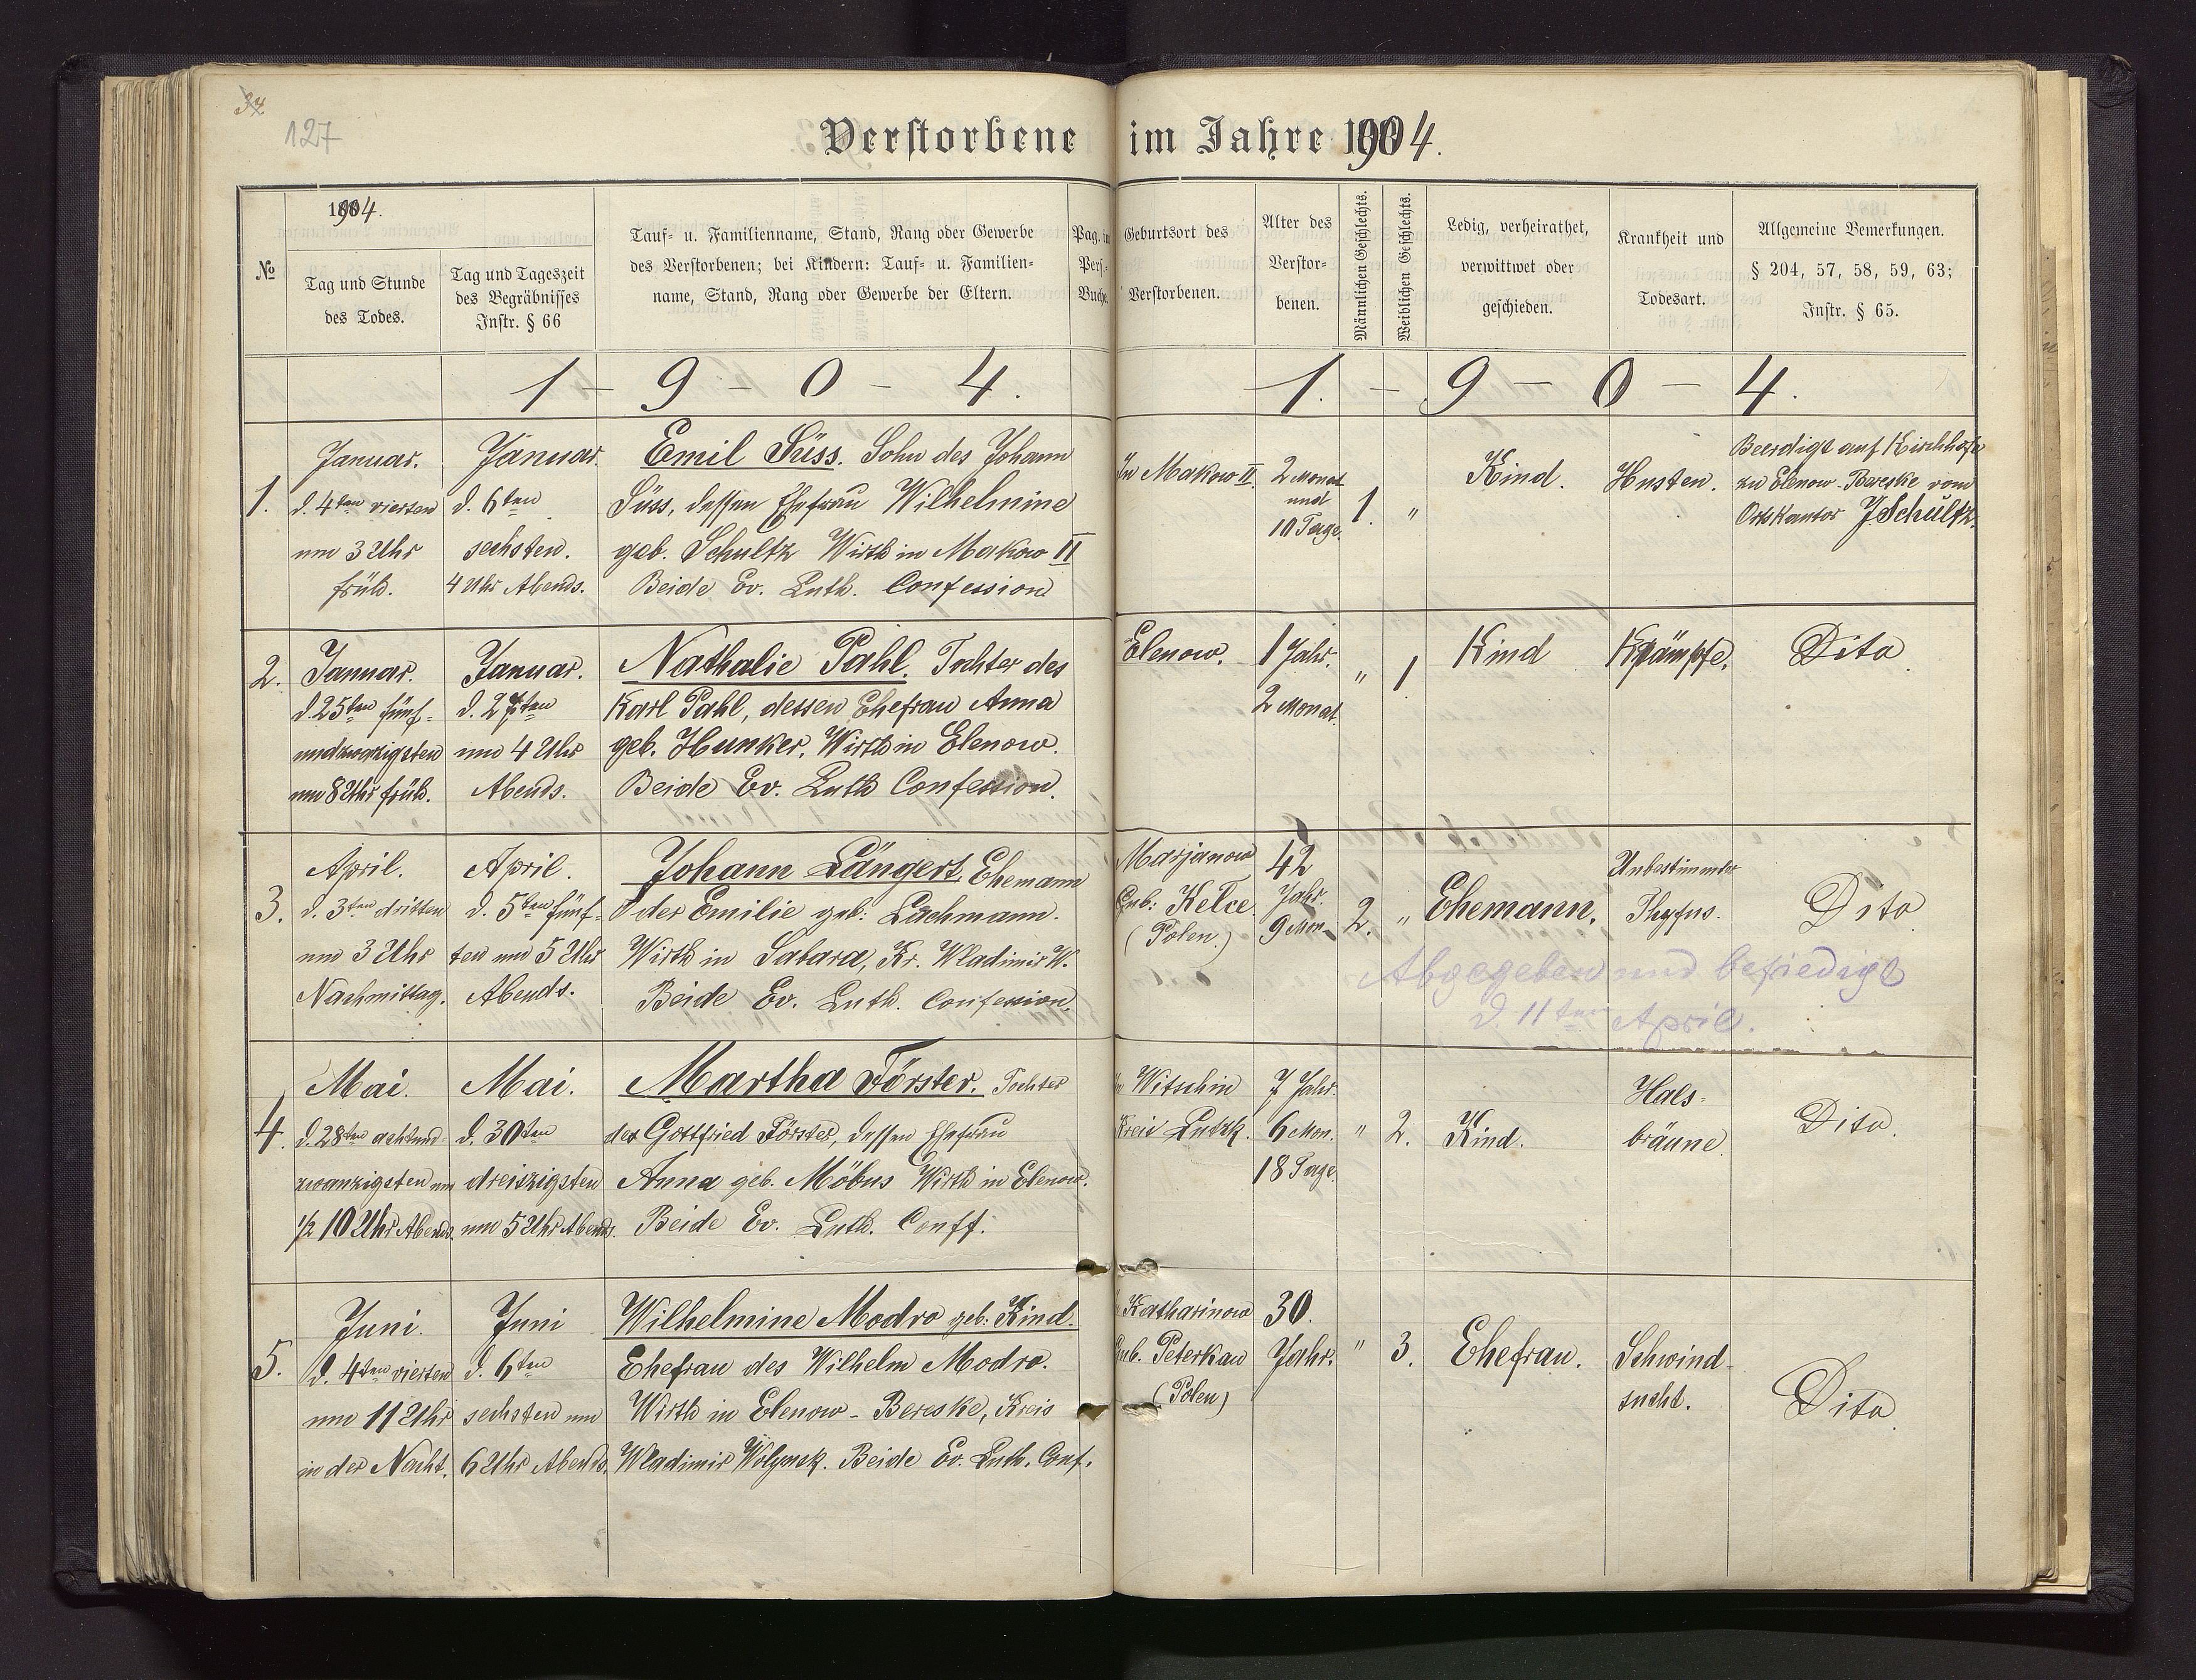 34
127
Verstorbene im Jahre 1904.
№
1904.
Tag und Stunde
des Todes.
Tag und Tageszeit
des Begräbnisses
Instr. § 66
Tauf- u. Familienname, Stand, Rang oder Gewerbe
des Verstorbenen; bei Kindern: Tauf- u. Familien-
name, Stand, Rang oder Gewerbe der Eltern.
Pag. im
Pers.-
Buche.
Geburtsort des
Verstorbenen.
Alter des
Verstor-
benen.
Männlichen Geschlechts.
Weiblichen Geschlechts.
Ledig, verheirathet,
verwittwet oder
geschieden.
Krankheit und
Todesart.
Allgemeine Bemerkungen.
§ 204, 57, 58, 59, 63;
Instr. § 65.
1 - 9 - 0 - 4.
1. - 9 - 0 - 4.
1.
Januar.
d. 4ten vierten
um 3 Uhr
früh.
Januar.
d. 6ten
sechsten.
4 Uhr Abends.
Emil Süss. Sohn des Johann
Süss, dessen Ehefrau Wilhelmine
geb. Schultz Wirth in Makow II
Beide Ev. Luth. Confession
In Makow II.
2 Monat
und
10 Tage.
1.
"
Kind.
Husten.
Beerdigt auf Kirchhofe
zu Elenow-Bereske vom
Ortskantor J Schultz.
2.
Januar.
d. 25ten fünf-
undzwazigsten
um 8 Uhr früh.
Januar.
d. 27ten
um 4 Uhr
Abends.
Nathalie Pahl. Tochter des
Karl Pahl, dessen Ehefrau Anna
geb. Hunker. Wirth in Elenow.
Beide Ev. Luth Confession.
Elenow.
1 Jahr.
2 Monat.
"
1
Kind
Krämpfe.
Dito.
3.
April.
d. 3ten dritten
um 3 Uhr
Nachmittag.
April.
d. 5ten fünf-
ten um 5 Uhr
Abends.
Johann Längert. Ehemann
der Emilie geb: Lachmann.
Wirth in Sabara, Kr. Wladimir W.
Beide Ev. Luth. Confession.
Marjanow
Gub: Kelce.
(Polen.)
42
Jahr.
9 Mon.
2.
"
Ehemann.
Unbestimmter
Thyfus.
Dito
Abgegeben und befriedigt
d. 11ten April.
4.
Mai.
d. 28ten achtund-
zwanzigsten um
1/2 10 Uhr Abends.
Mai.
d. 30ten
dreiszigsten
um 5 Uhr Abends.
Martha Förster. Tochter
des Gottfried Förster, dessen Ehefrau
Anna geb. Möbus Wirth in Elenow.
Beide Ev. Luth. Conff.
Witschin
Kreis Lutzk.
7 Jahr.
6 Mon.
18 Tage.
"
2.
Kind.
Hals-
bräune
Dito.
5.
Juni.
d. 4ten vierten
um 11 Uhr
in der Nacht.
Juni
d. 6ten
sechsten um
6 Uhr Abends.
Wilhelmine Modro geb: Kind.
Ehefrau des Wilhelm Modro.
Wirth in Elenow - Bereske, Kreis
Wladimir Wolynsk. Beide Ev. Luth. Conf.
Katharinow
Gub. Peterkau
(Polen)
30.
Jahr.
"
3.
Ehefrau.
Schwind-
sucht.
Dito.